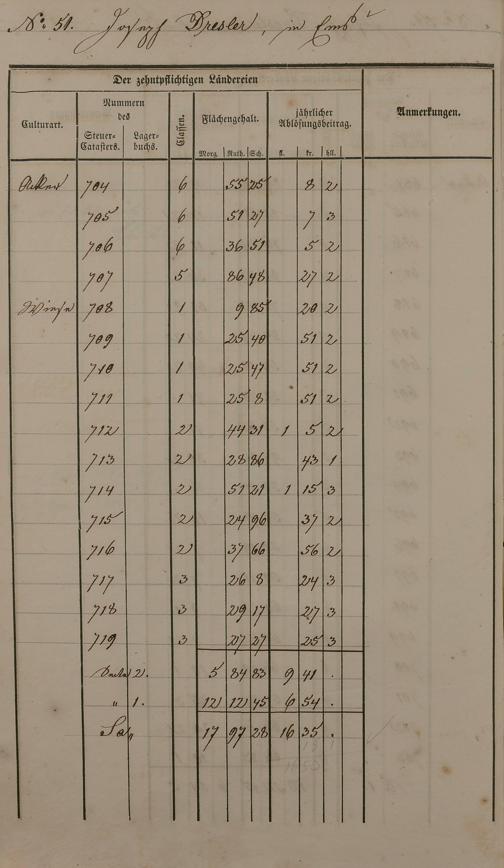 No: 51. Joseph Dresler, in Ems
Der zehntpflichtigen Ländereien
Anmerkungen.
Culturart. Nummern des Classen. Flächengehalt. jährlicher Ablösungsbeitrag.
Steuer-Catasters. Lager-buchs.
Morg. Ruth. Sch. fl. kr. hll.
Acker 704 6 55 25 8 2
705 6 51 27 7 3
706 6 36 51 5 2
707 5 86 48 27 2
Wiese 708 1 9 85 20 2
709 1 25 40 51 2
710 1 25 47 51 2
711 1 25 8 51 2
712 2 44 31 1 5 2
713 2 28 86 43 1
714 2 51 21 1 15 3
715 2 24 96 37 2
716 2 37 66 56 2
717 3 26 8 24 3
718 3 29 17 27 3
719 3 27 27 25 3
2. 5 84 83 9 41 .
" 1. 12 12 45 6 54 .
Sa 17 97 28 16 35 .